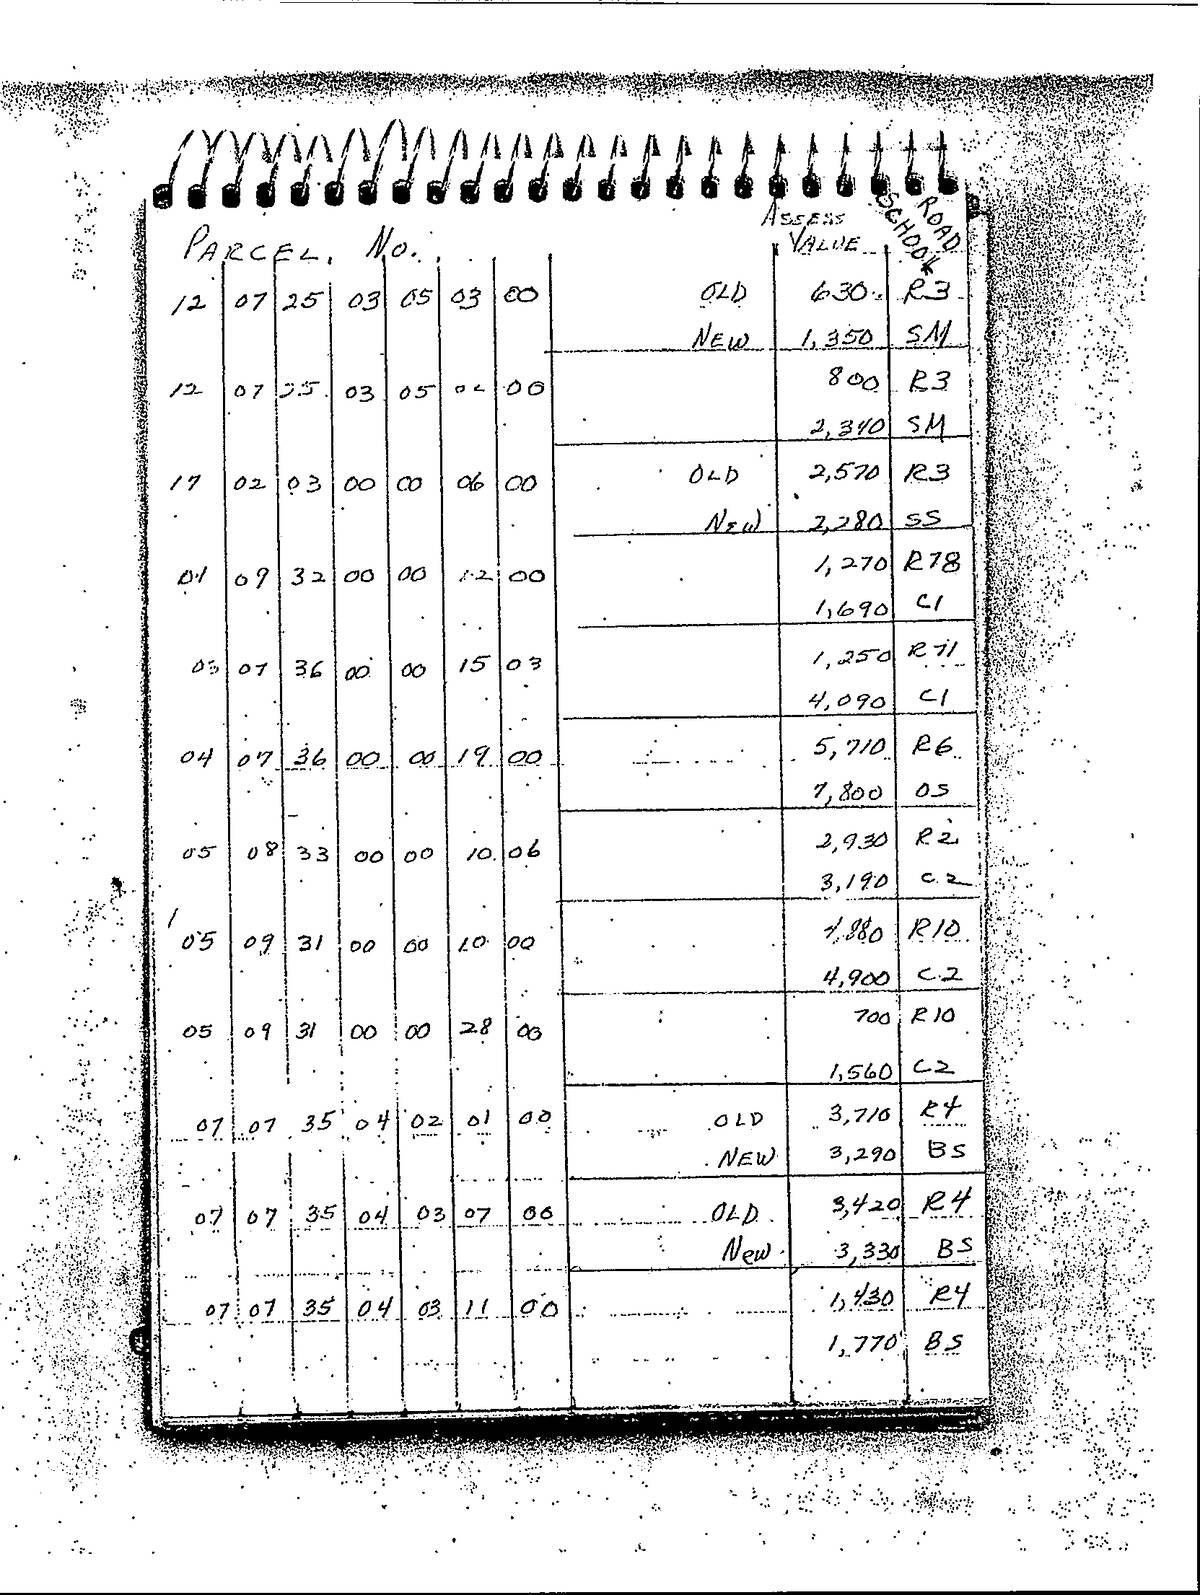 ASSESS ROAD
PARCEL. NO. VALUE SCHOOL
12 07 25 03 05 03 00 OLD 630 R3
NEW 1,350 SM
12 07 25 03 05 00 800 R3
2,340 SM
17 02 03 00 00 06 00 OLD 2,570 R3
NEW 2,280 SS
01 09 32 00 00 12 00 1,270 R78
1,690 C1
03 07 36 00 00 15 03 1,250 R71
4,090 C1
04 07 36 00 00 19 00 5,710 R6
7,800 OS
05 08 33 00 00 10 06 2,930 R2
3,190 C2
05 09 31 00 00 10 00 R10
4,900 C2
05 09 31 00 00 28 00 700 R10
1,560 C2
07 07 35 04 02 01 00 OLD 3,710 R4
NEW 3,290 BS
07 07 35 04 03 07 00 OLD 3,420 R4
New 3,330 BS
07 07 35 04 03 11 00 1,430 R4
1,770 BS